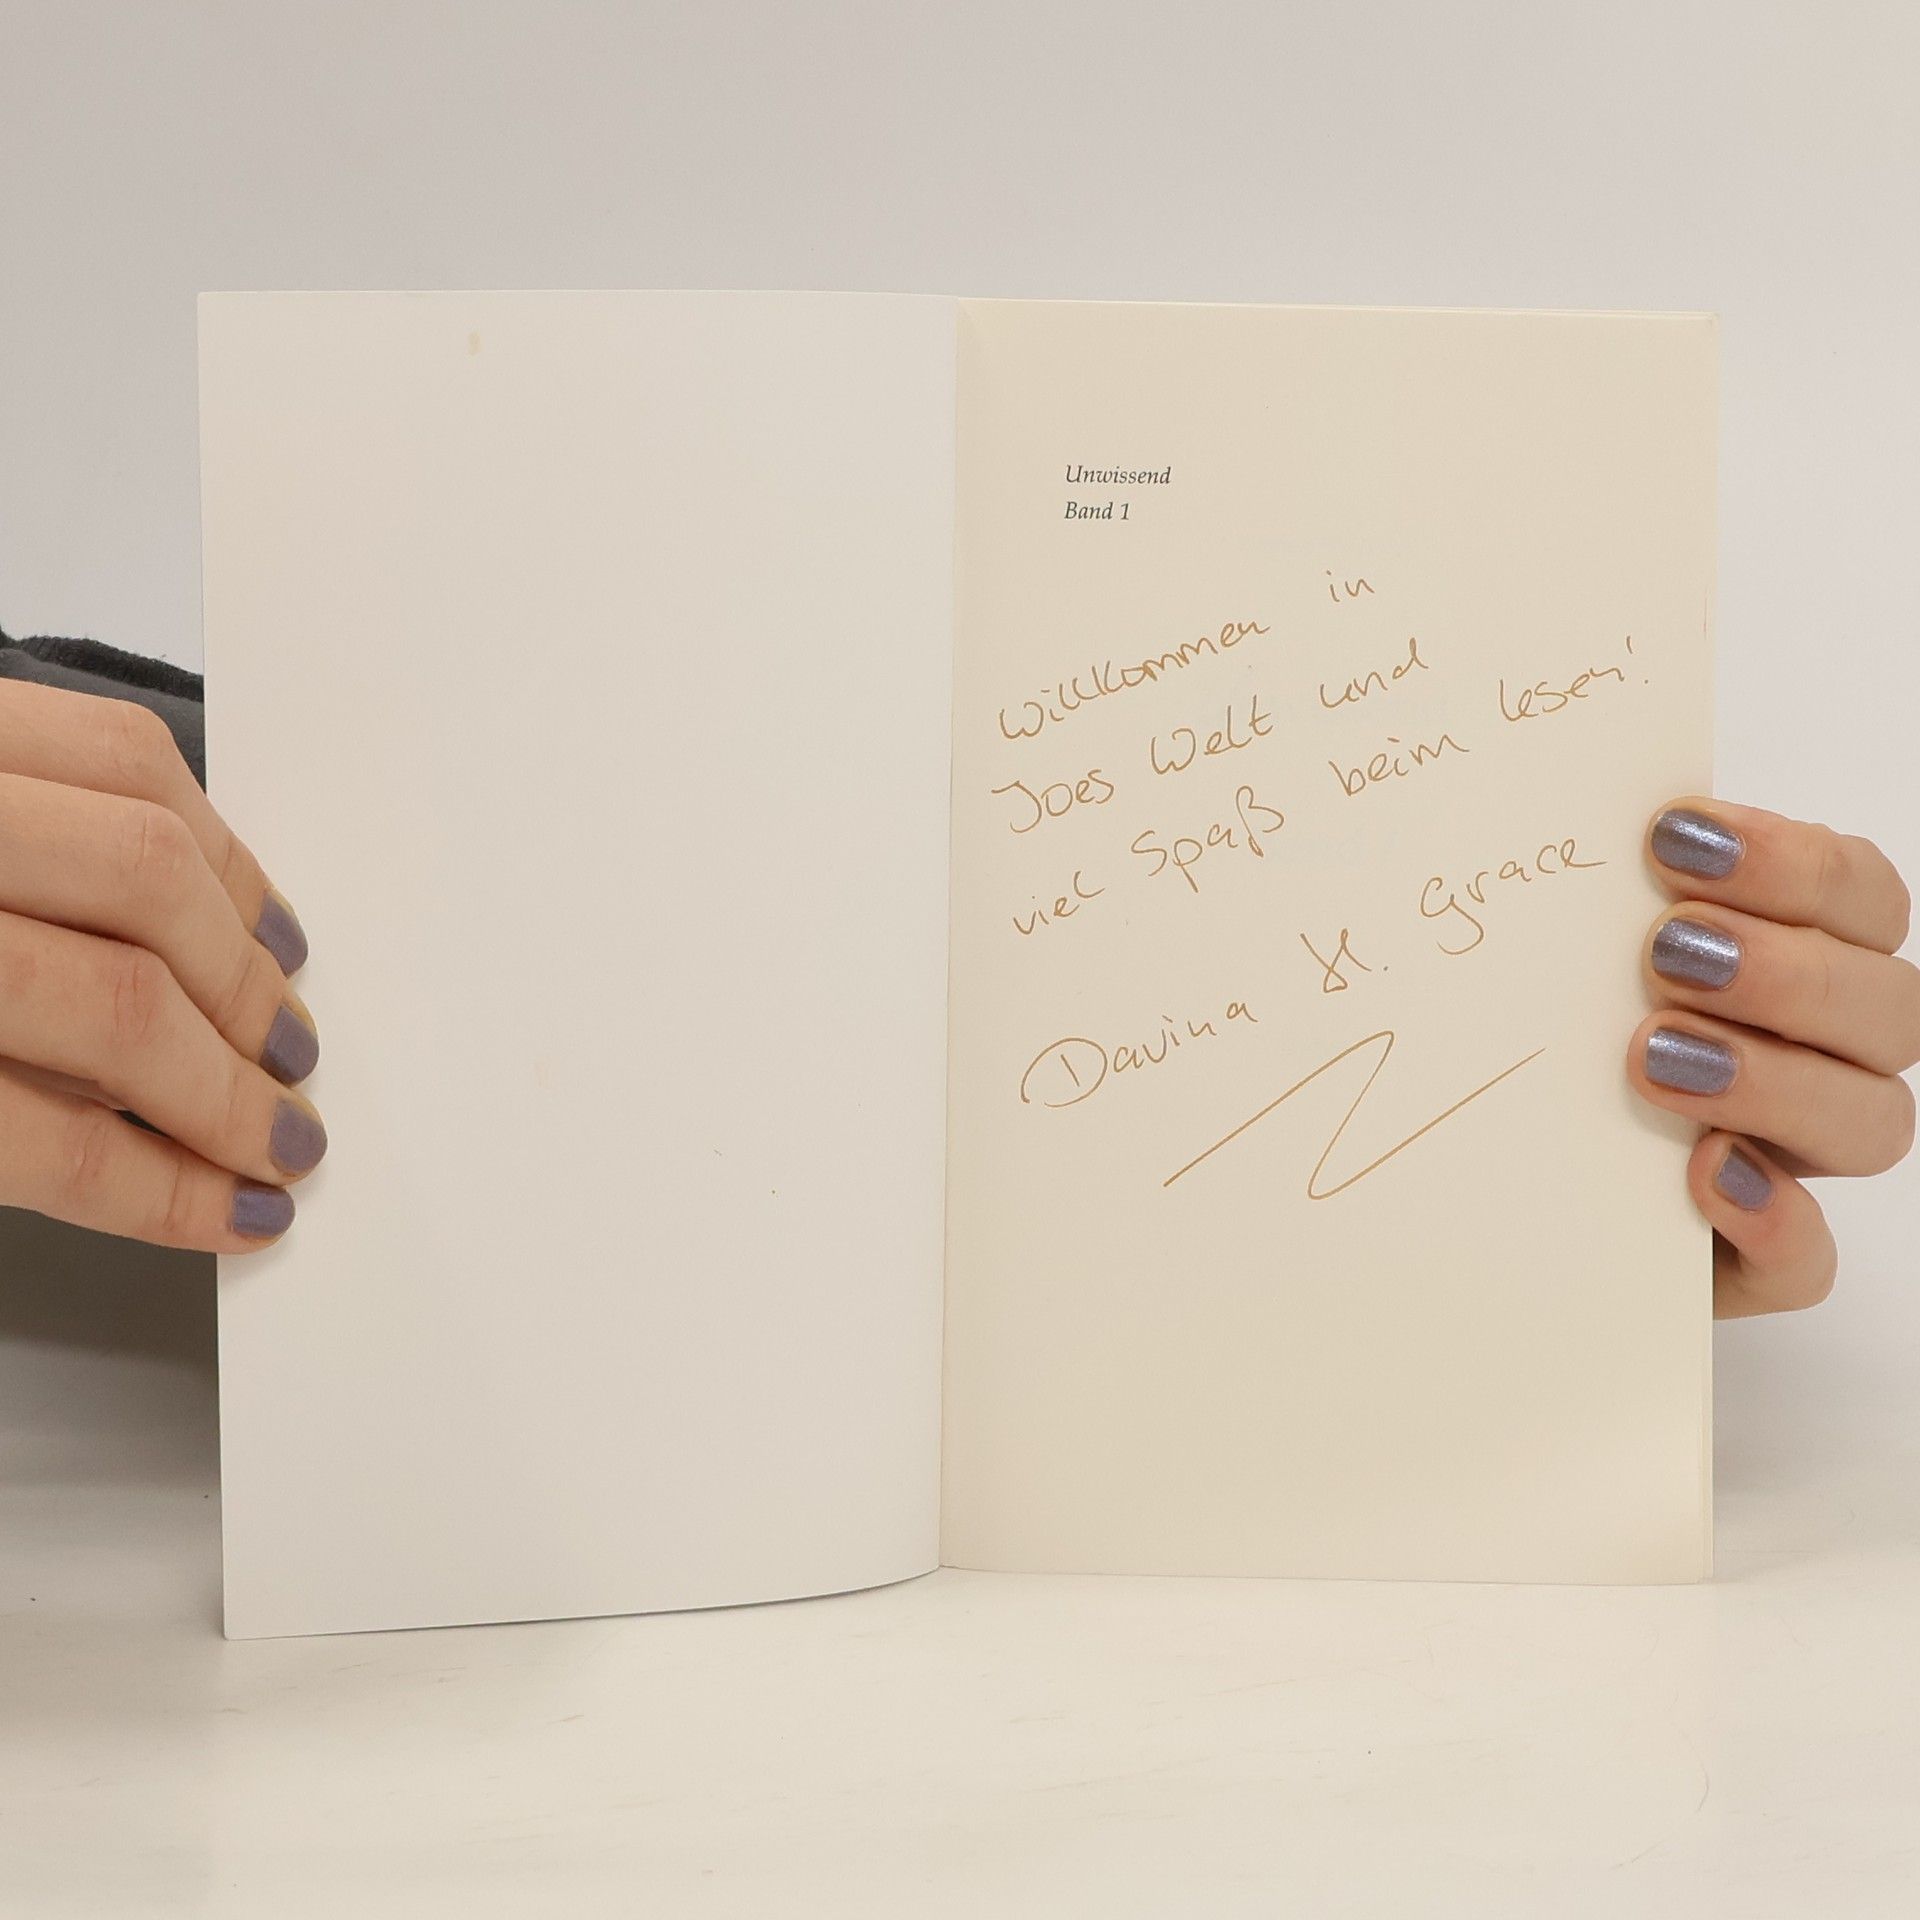 Unwissend
Band 1
Willkommen in
Joes Welt und
viel Spaß beim lesen!
Davina H. Grace